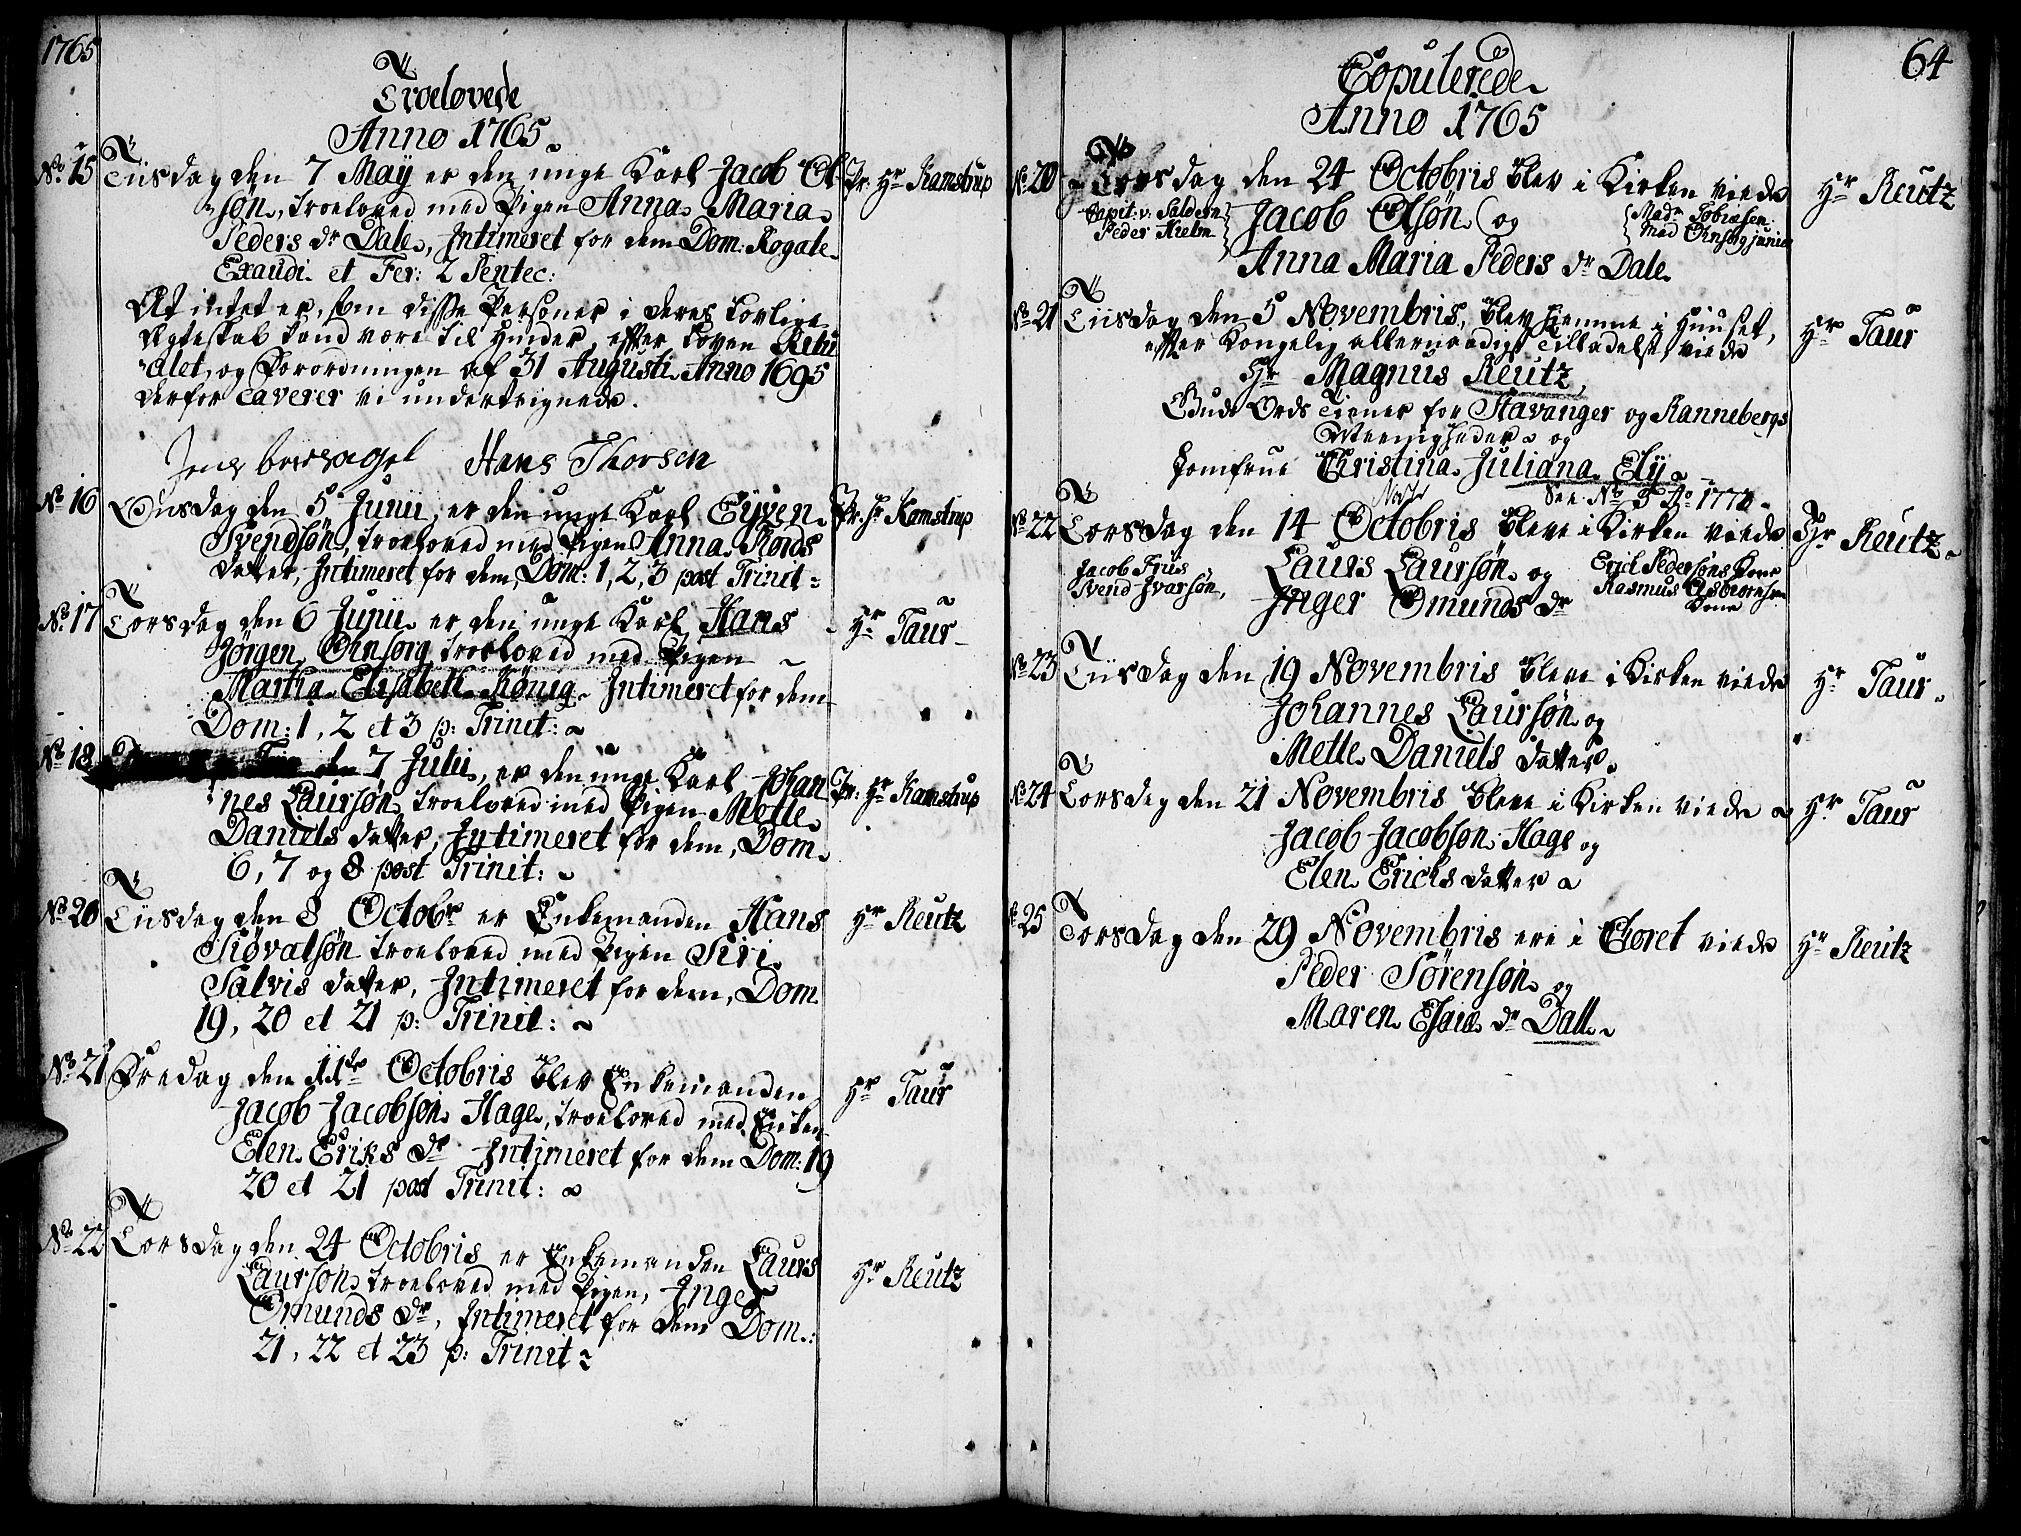 1765
Troelovede
Anno 1765
No. 15 Tiisdag den 7 May er den unge Karl Jacob Ol- Pr: Hr Kamstrup
søn, troeloved med Pigen Anna Maria
Peders dr Dale, Intimeret for dem Dom: Rogate
Exaudi et Fer: 2 Pentec:
At intet er, som disse Personer i deres lovlige
Ægteskab kand være til Hinder, efter Loven Ritu
alet, og Forordningen af 31 Augusti Anno 1695
derfor caverer vi undertegnede.
Jens Hans Thorsen
No 16 Onsdag den 5 Junii, er den unge Karl Eyven Pr. Hr Kamstrup
Svendsøn, troeloved med Pigen Anna Kords
datter, Intimeret for dem, Dom: 1, 2, 3 post Trinit:
No. 17 Torsdag den 6 Junii er den unge Karl Hans Hr Taur
Jørgen Ohnsorg troeloved med Pigen
Martha Elisabeth König Intimeret for dem
Dom: 1, 2 et 3 p: Trinit:
No 18 den 7 Julii, er den unge Karl Johan Pr: Hr Kamstrup
nes Laursøn troeloved med Pigen Mette
Daniels datter, Intimeret for dem, Dom
6, 7 og 8 post Trinit:
No 20 Tiisdag den 8 Octobr er Enkemanden Hans Hr Reutz
Siövalsøn troeloved med Pigen Siri
Salvis datter, Intimeret for dem, Dom
19, 20 et 21 p: Trinit:
No 21 Fredag den 11te Octobris blev Enkemanden Hr Taur
Jacob Jacobsøn Hage, troeloved med Enken
Elen Eriks dr Intimeret for dem Dom: 19
20 et 21 post Trinit:
No 22 Torsdag den 24 Octobris er Enkemanden Laurs Hr Reutz
Laursøn troeloved med Pigen, Inger
Omunds dr, Intimeret for dem Dom:
21, 22 et 23 p: Trinit
64
Copulerede
Anno 1765
No 20 Torsdag den 24 Octobris blev i Kirken viede Hr Reutz
Capit: v: Saldern Jacob Olsøn og Madm Tobiesen
Peder Hielm Mad Ohnsorg junior
Anna Maria Peders dr Dale
No 21 Tiisdag den 5 Novembris, blev hiemme i Huuset, Hr Taur
efter Kongelig allernaadigst Tilladelse, viede
Hr Magnus Reutz
Guds Ords Tiener for Stavanger og Rannebergs
Meenigheder og
Jomfrue Christina Juliana Ely
See No 5 Ao 1772
No 22 Torsdag den 14 Octobris bleve i Kirken viede Hr Reutz
Jacob Friis Laurs Laursøn og Erich Pedersøns Kone
Svend Ivarsøn, Inger Omunds dr Rasmus Asbiørnsens
Kone
No 23 Tiisdag den 19 Novembris bleve i Kirken viede Hr Taur
Johannes Laursøn og
Mette Daniels datter
No 24 Torsdag den 21 Novembris bleve i Kirken viede Hr Taur
Jacob Jacobsøn Hage og
Elen Ericks datter
No 25 Torsdag den 29 Novembris ere i Choret viede Hr Reutz
Peder Sørensøn og
Maren Esaiæ dr Dall